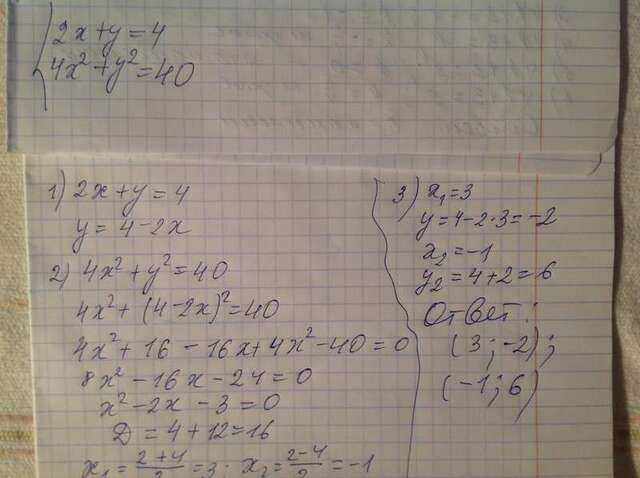 2x+y=4
4x²+y²=40
1) 2x+y=4
y=4-2x
2) 4x²+y²=40
4x²+(4-2x)²=40
4x²+16-16x+4x²-40=0
8x²-16x-24=0
x²-2x-3=0
D=4+12=16
x₁=(2+4)/2=3; x₂=(2-4)/2=-1
3) x₁=3
y=4-2·3=-2
x₂=-1
y₂=4+2=6
Ответ:
(3;-2);
(-1;6)